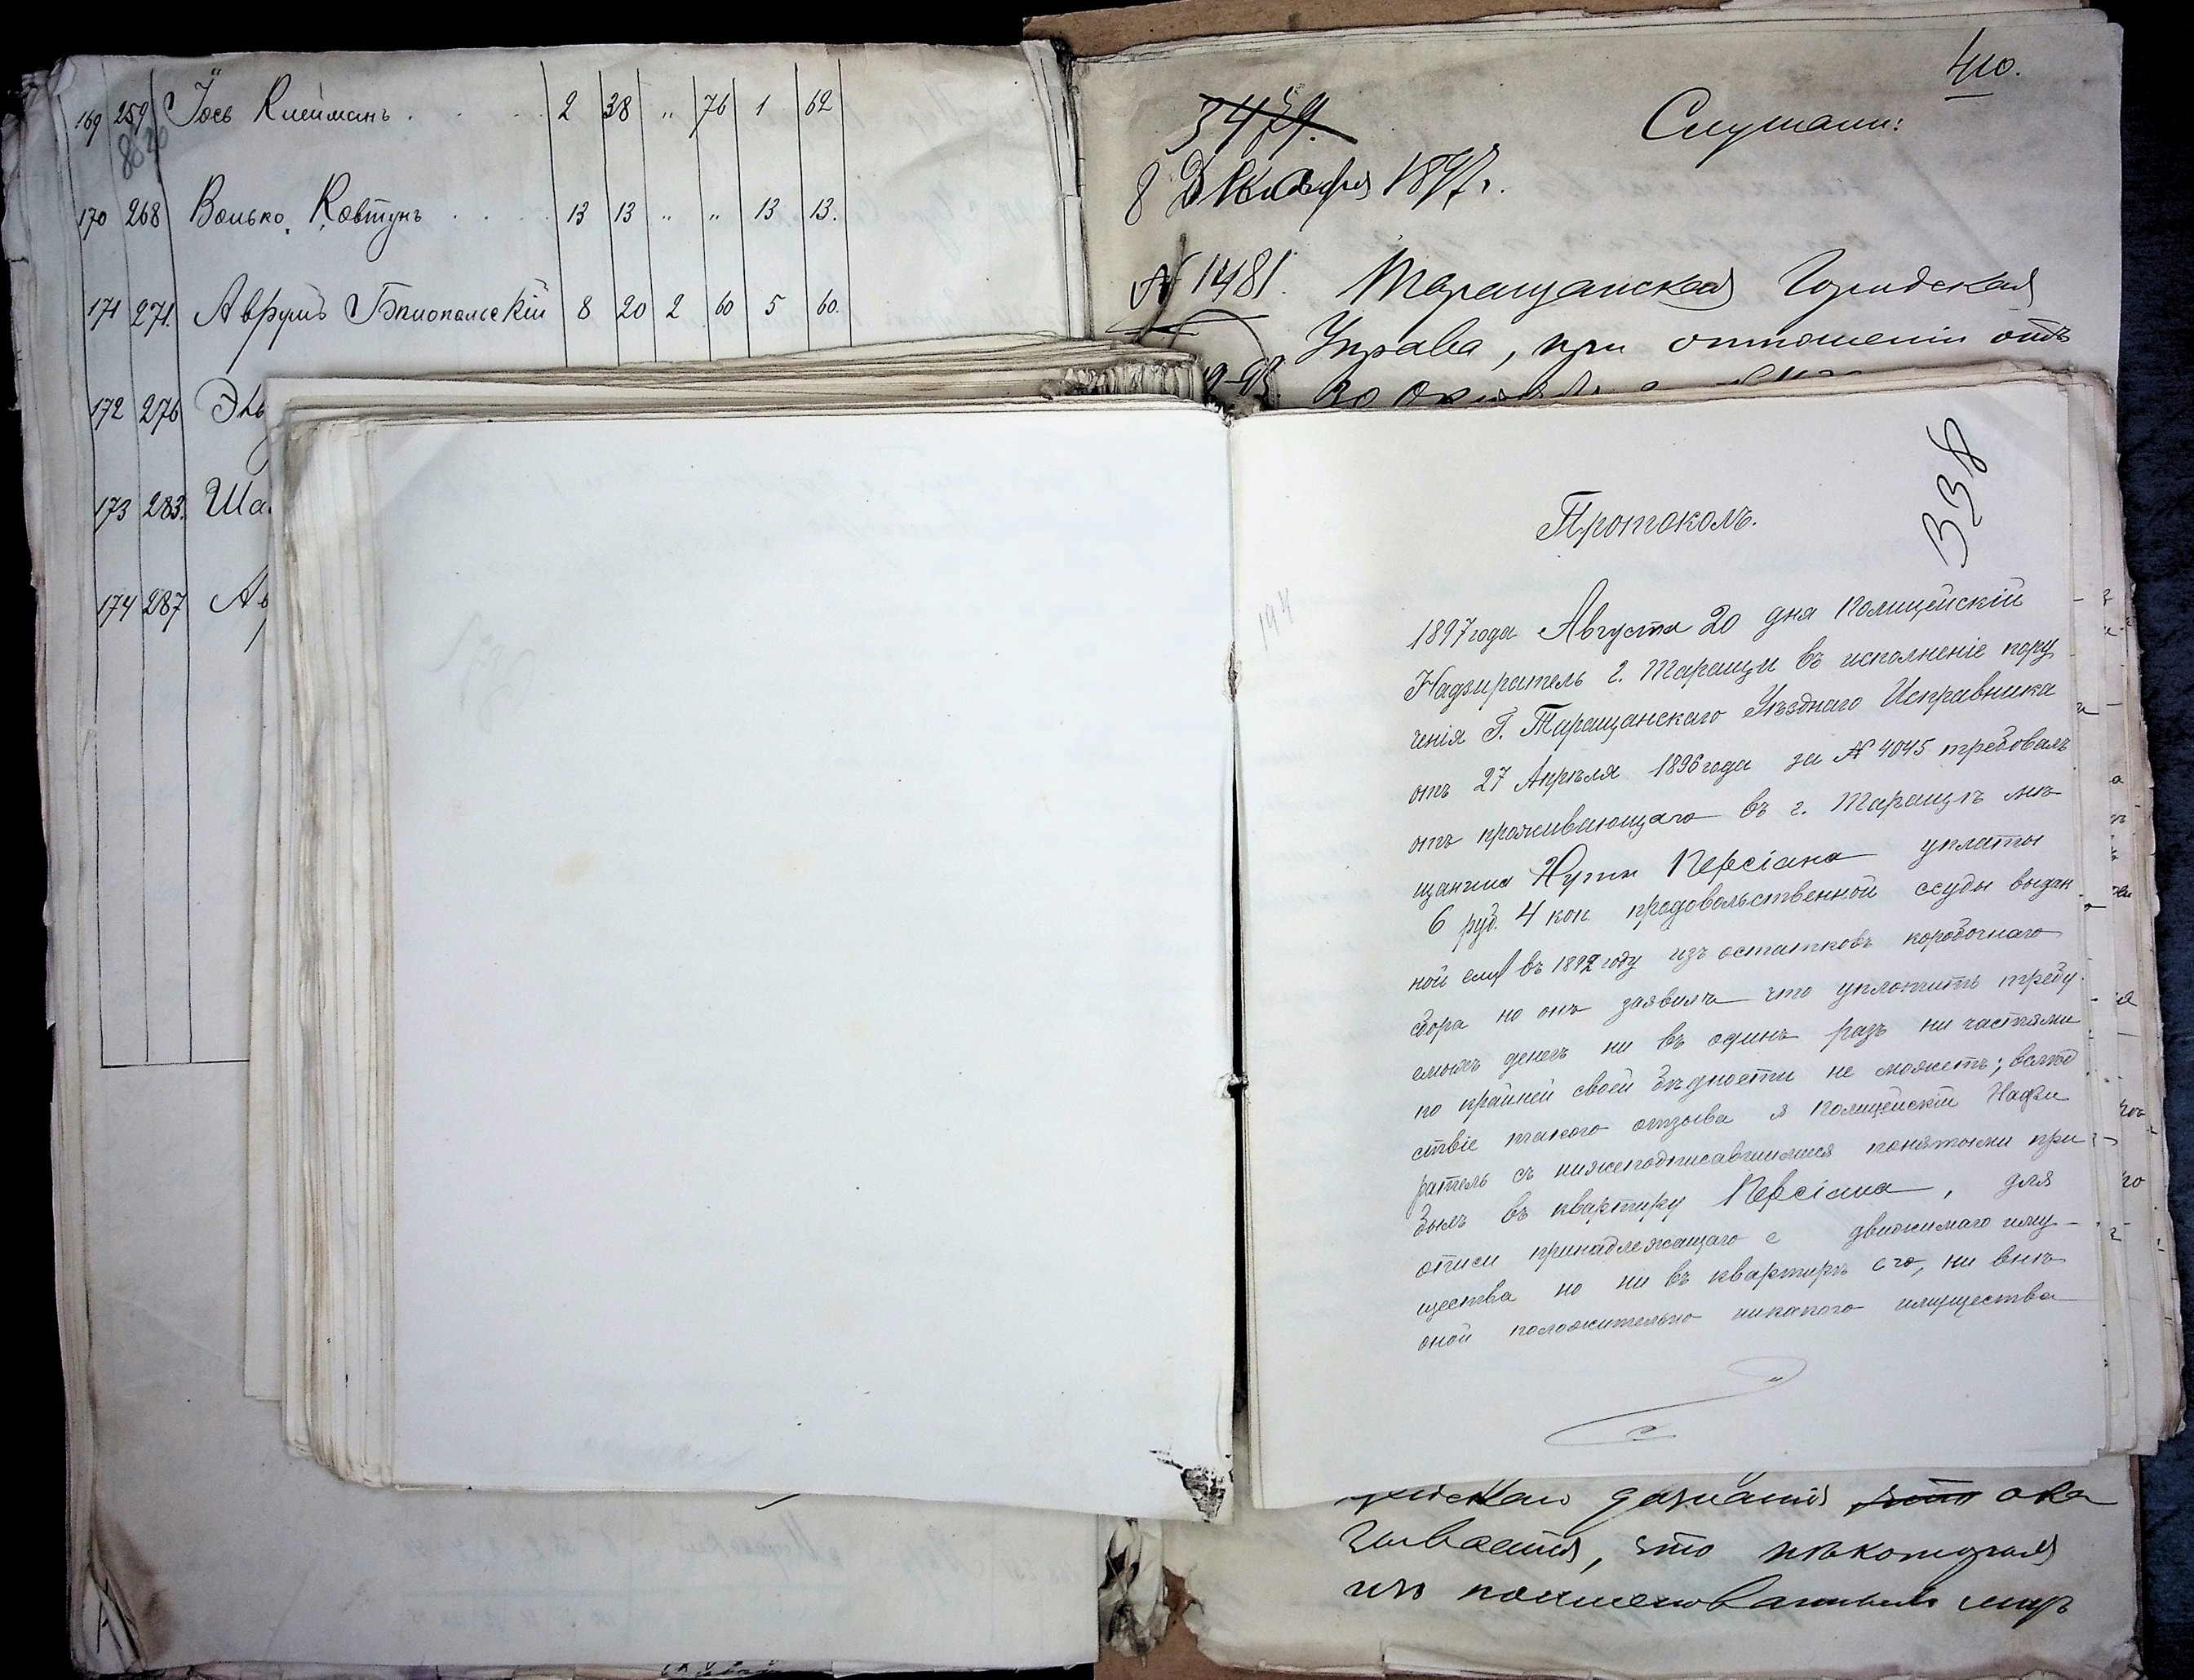 169 259 Іось Клейманъ . . . 2 38 " 76 1 62
170 268 Волько Ковтунъ . . . 13 13 " " 13 13.
171 271. Аврумъ Бѣлопольскій 8 20 2 60 5 60.
172 276
173 283. Ша
174 287
410.
3479.
Слушали:
8 Декабря 1897г.
№ 1481.
Таращанская Городская
Управа, при отношеніи отъ
338
Протоколъ.
194
1897 года Августа 20 дня Полицейскій
Надзиратель г. Таращи въ исполненіе пору
ченія Г. Таращанскаго Уѣзднаго Исправника
отъ 27 Апрѣля 1896 года за № 4045 требовалъ
отъ проживающаго въ г. Таращѣ мѣ
щанина Нути Персіана уплаты
6 руб. 4 коп. продовольственной ссуды выдан
ной ему въ 1892 году изъ остатковъ коробочнаго
сбора но онъ заявилъ что уплатить требу
емыхъ денегъ ни въ одинъ разъ ни частями
по крайней своей бѣдности не можетъ; вслѣд
ствіе такого отзыва я Полицейскій Надзи
ратель съ нижеподписавшимися понятыми при
былъ въ квартиру Персіана, для
описи принадлежащаго е движимаго иму
щества но ни въ квартирѣ его, ни внѣ
оной положительно никакого имущества
дознанія ока
зывается, что нѣкоторыя
изъ поименованныхъ лицъ